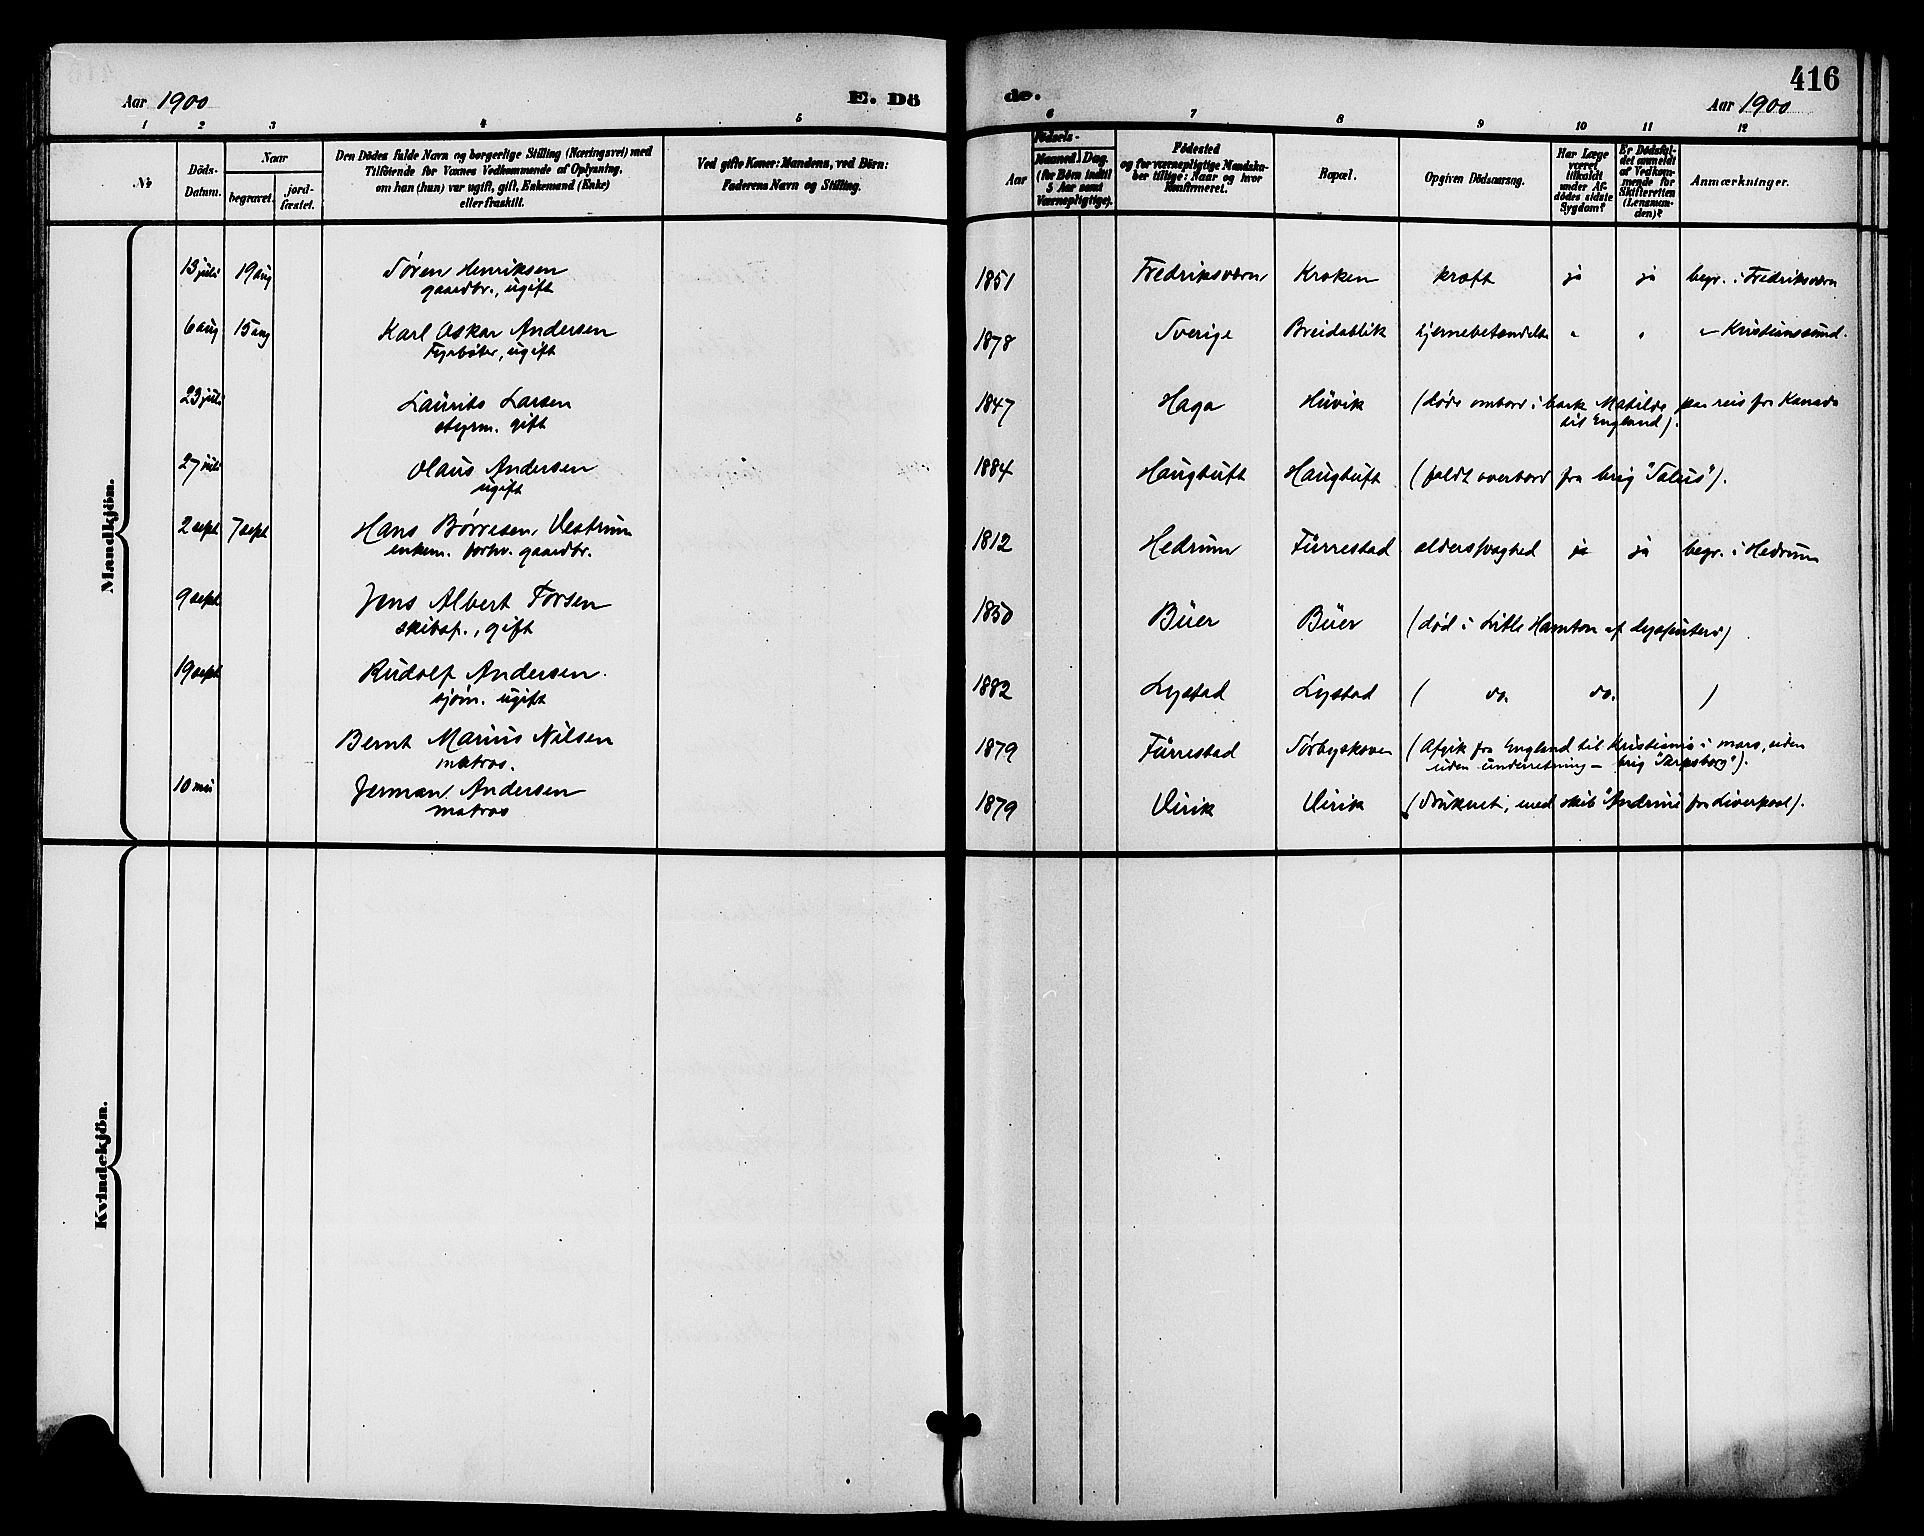 416
Aar 1900
E. Dö
de.
Aar 1900
1 2 3 4 5 6 7 8 9 10 11 12
No
Döds-
Datum.
Naar
begravet.
jord-
fæstet.
Den Dödes fulde Navn og borgerlige Stilling (Næringsvei) med
Tilföiende for Voxnes Vedkommende af Oplysning,
om han (hun) var ugift, gift, Enkemand (Enke)
eller fraskilt.
Ved gifte Koner: Mandens, ved Börn:
Faderens Navn og Stilling.
Födsels-
Aar
Maaned. Dag.
(for Börn indtil
5 Aar samt
Værnepligtige).
Födested
og for værnepligtige Mandska-
ber tillige: Naar og hvor
Konfirmeret.
Bopæl.
Opgiven Dödsaarsag.
Har Læge
været
tilkaldt
under Af-
dödes sidste
Sygdom?
Er Dödsfal-
det anmeldt
af Vedkom-
mende for
Skifteretten
(Lensman-
den)?
Anmærkninger.
Mandkjön.
13 juli 19 aug Søren Henriksen 1851 Fredriksværn Kroken kræft ja ja begr. i Fredriksværn
gaardbr., ugift
6 aug 15 aug Karl Oskar Andersen 1878 Sverige Breidablik hjernebetændelse " " " Kristianssund.
Fyrbøter, ugift
23 juli Laurits Larsen 1847 Haga Huvik (døde ombord i bark Matilde paa reis fra Kanada
styrm. gift til England).
27 juli Olaus Andersen 1884 Haugtuft Haugtuft (faldt overbord fra brig "Talus").
ugift
2 sept 7 sept Hans Børresen Vestrum 1812 Hedrum Furrestad aldersvaghed ja ja begr. i Hedrum
enkem. forhv. gaardbr.
9 sept Jens Albert Torsen 1850 Buer Buer (død i Little Hamton af dysenteri)
skibsf., gift
19 sept Rudolf Andersen 1882 Lystad Lystad ( do. do. )
sjøm. ugift
Bernt Marius Nilsen 1879 Furrestad Torbyskoven (Afgik fra England til Kristiania i mars, siden
matros. uden underretning – brig "Sarpsborg").
10 mai Jerman Andersen 1879 Virik Virik (druknet, med skib "Andrine" fra Liverpool).
matros
Kvindekjön.